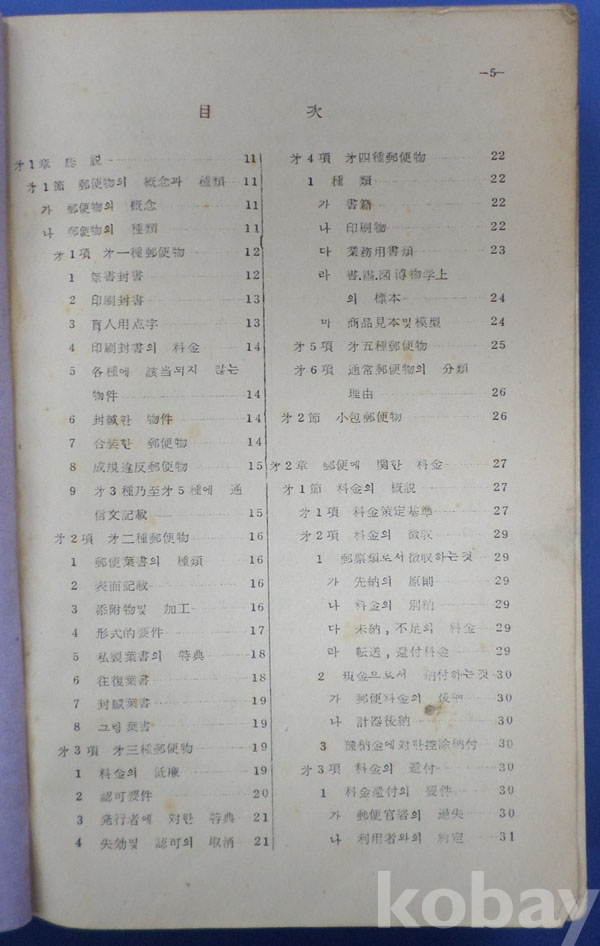 —5—
目 次
才1章 總 説 11
才1節 郵便物의 概念과 種類 11
가 郵便物의 概念 11
나 郵便物의 種類 11
才1項 才一種郵便物 12
1 筆書封書 12
2 印刷封書 13
3 盲人用点字 13
4 印刷封書의 料金 14
5 各種에 該当되지 않는
物件 14
6 封緘한 物件 14
7 合装한 郵便物 14
8 成規違反郵便物 15
9 才3種乃至才5種에 通
信文記載 15
才2項 才二種郵便物 16
1 郵便葉書의 種類 16
2 表面記載 16
3 添附物및 加工 16
4 形式的要件 17
5 私製葉書의 特典 18
6 往復葉書 18
7 封緘葉書 19
8 그림葉書 19
才3項 才三種郵便物 19
1 料金의 低廉 19
2 認可要件 20
3 発行者에 対한 特典 21
4 失効및 認可의 取消 21
才4項 才四種郵便物 22
1 種 類 22
가 書籍 22
나 印刷物 22
다 業務用書類 23
라 書.画.図博物学上
의 標本 24
마 商品見本및模型 24
才5項 才五種郵便物 25
才6項 通常郵便物의 分類
理由 26
才2節 小包郵便物 26
才2章 郵便에 関한 料金 27
才1節 料金의 概説 27
才1項 料金策定基準 27
才2項 料金의 徴収 29
1 郵票類로서徴収하는것 29
가 先納의 原則 29
나 料金의 別納 29
다 未納,不足의 料金 29
라 転送,還付料金 29
2 現金으로서 納付하는것 30
가 郵便料金의 後納 30
나 計器後納 30
3 豫納金에対한控除納付 30
才3項 料金의 還付 30
1 料金還付의 要件 30
가 郵便官署의 過失 30
나 利用者와의 約定 31
kobay